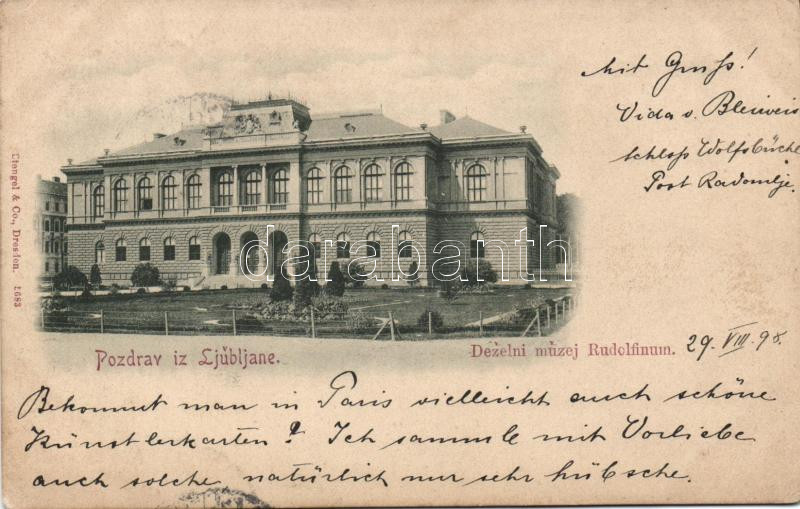 Mit Gruss!
Vida v. Bleiweis
Schloss Wolfsbüchl
Post Radomlje.
Stengel & Co., Dresden. 5683
darabanth
Pozdrav iz Ljubljane.
Deželni muzej Rudolfinum.
29. VIII. 98.
Bekommt man in Paris vielleicht auch schöne
Künstlerkarten? Ich sammle mit Vorliebe
auch solche natürlich nur sehr hübsche.